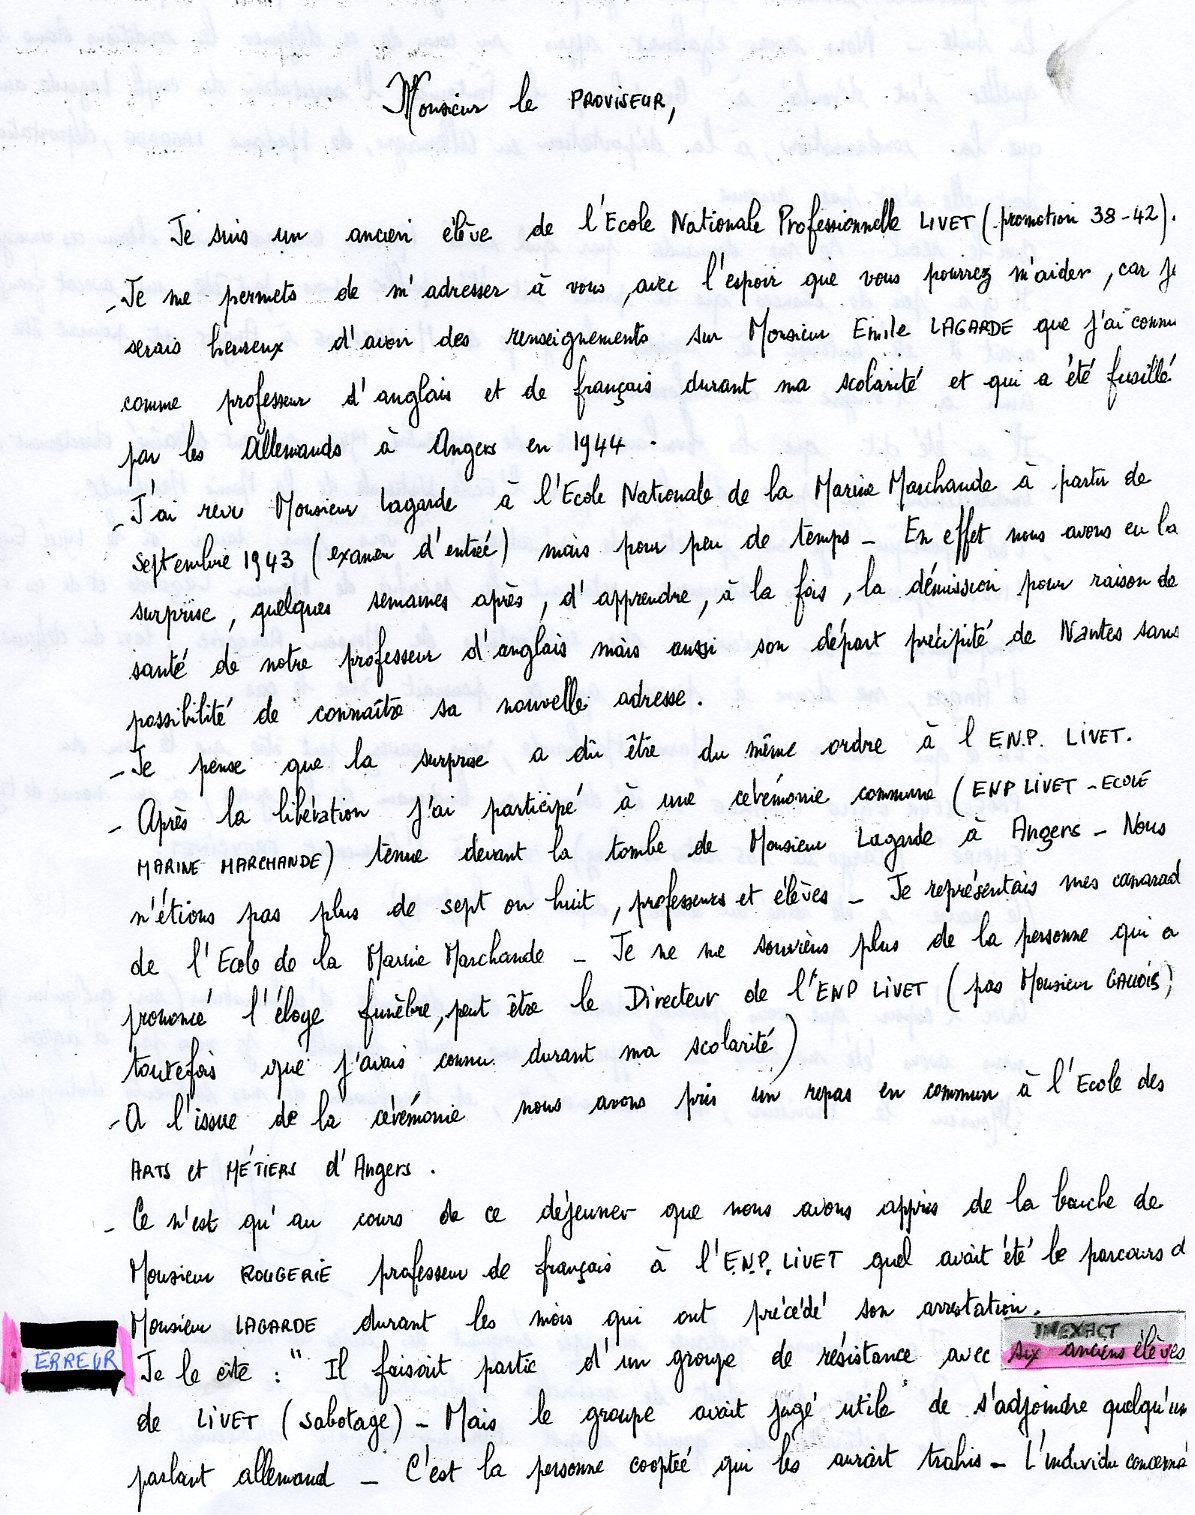 Monsieur le PROVISEUR,
Je suis un ancien élève de l'Ecole Nationale Professionnelle LIVET (promotion 38-42).
- Je me permets de m'adresser à vous, avec l'espoir que vous pourrez m'aider, car je
serais heureux d'avoir des renseignements sur Monsieur Emile LAGARDE que j'ai connu
comme professeur d'anglais et de français durant ma scolarité et qui a été fusillé
par les Allemands à Angers en 1944.
- J'ai revu Monsieur Lagarde à l'Ecole Nationale de la Marine Marchande à partir de
Septembre 1943 (examen d'entrée) mais pour peu de temps - En effet nous avons eu la
surprise, quelques semaines après, d'apprendre, à la fois, la démission pour raison de
santé de notre professeur d'anglais mais aussi son départ précipité de Nantes sans
possibilité de connaître sa nouvelle adresse.
- Je pense que la surprise a dû être du même ordre à l E.N.P. LIVET.
- Après la libération j'ai participé à une cérémonie commune (ENP LIVET - ECOLE
MARINE MARCHANDE) tenue devant la tombe de Monsieur Lagarde à Angers - Nous
n'étions pas plus de sept ou huit, professeurs et élèves - Je représentais mes camarad
de l'Ecole de la Marine Marchande - Je ne me souviens plus de la personne qui a
prononcé l'éloge funèbre, peut être le Directeur de l'ENP LIVET (pas Monsieur GAUDIS,
toutefois que j'avais connu durant ma scolarité)
- A l'issue de la cérémonie nous avons pris un repas en commun à l'Ecole des
ARTS et MÉTIERS d'Angers.
- Ce n'est qu'au cours de ce déjeuner que nous avons appris de la bouche de
Monsieur ROUGERIE professeur de français à l'E.N.P. LIVET quel avait été le parcours d
Monsieur LAGARDE durant les mois qui ont précédé son arrestation.
INEXACT
ERREUR
Je le cite : " Il faisait partie d'un groupe de résistance avec six anciens élèves
de LIVET (sabotage) - Mais le groupe avait jugé utile de s'adjoindre quelqu'un
parlant allemand - C'est la personne cooptée qui les aurait trahis - L'individu concerné